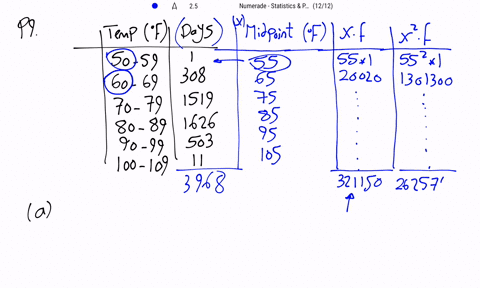 2.5 Numerade - Statistics & P... (12/12)
99. Temp (°F) (Days) (x) Midpoint (°F) x.f x².f
50-59 1 55 55*1 55²*1
60-69 308 65 20020 1301300
70-79 1519 75
80-89 1626 85
90-99 503 95
100-109 11 105
3968 321150 26257
(a)